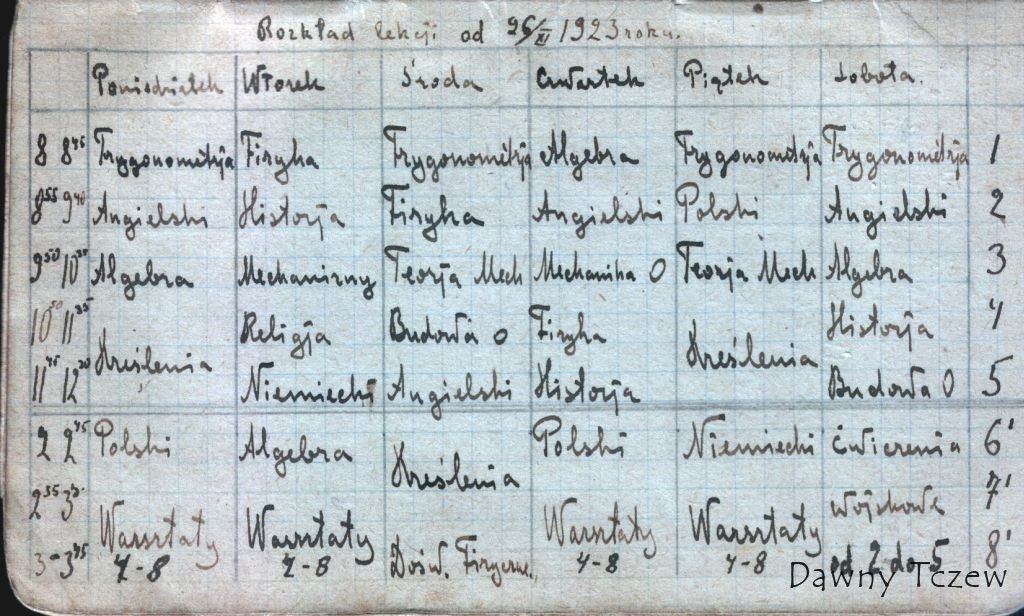 Rozkład lekcji od 26/XI 1923 roku.
Poniedziałek Wtorek Środa Czwartek Piątek Sobota.
8 8⁴⁵ Trygonometrja Fizyka Trygonometrja Algebra Trygonometrja Trygonometrja 1
8⁵⁵ 9⁴⁰ Angielski Historja Fizyka Angielski Polski Angielski 2
9⁵⁰ 10³⁵ Algebra Mechaniczny Teorja Mech Mechanika O Teorja Mech Algebra 3
10⁵⁰ 11³⁵ Religja Budowa O Fizyka Historja 4
Kreślenia Kreślenia
11⁴⁵ 12³⁰ Niemiecki Angielski Historja Budowa O 5
2 2⁴⁵ Polski Algebra Polski Niemiecki Ćwiczenia 6'
Kreślenia
2⁵⁵ wojskowe 7'
Warsztaty Warsztaty Warsztaty Warsztaty
3-3⁴⁵ Dośw. Fizyczne. od 2 do 5 8'
4-8 4-8 4-8
Dawny Tczew